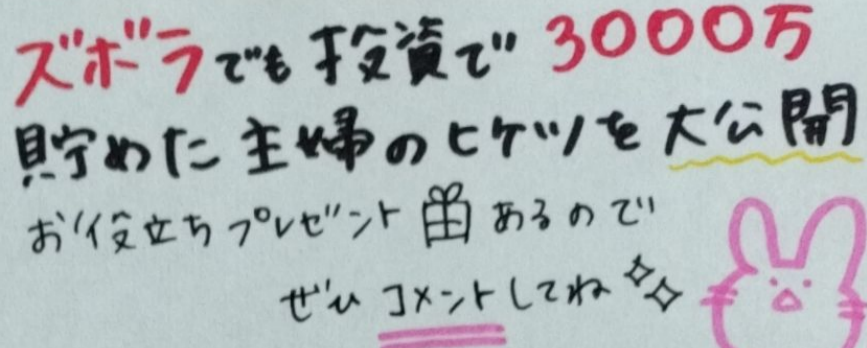 ズボラでも投資で3000万
貯めた主婦のヒケツを大公開
お役立ちプレゼントあるので
ぜひコメントしてね